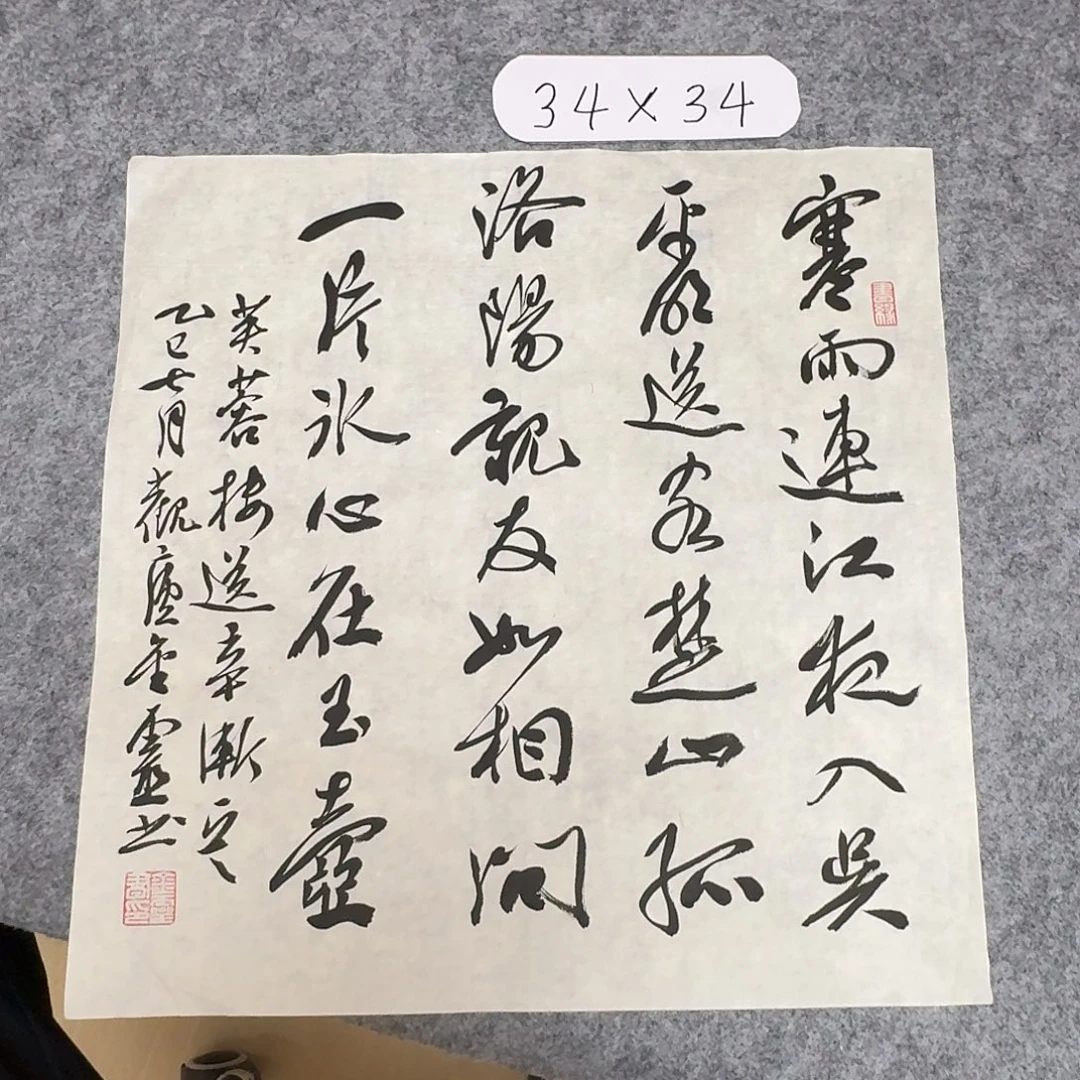 34×34
寒雨連江夜入吳
平明送客楚山孤
洛陽親友如相問
一片冰心在玉壺
芙蓉楼送辛漸
乙巳七月觀廬金靈书